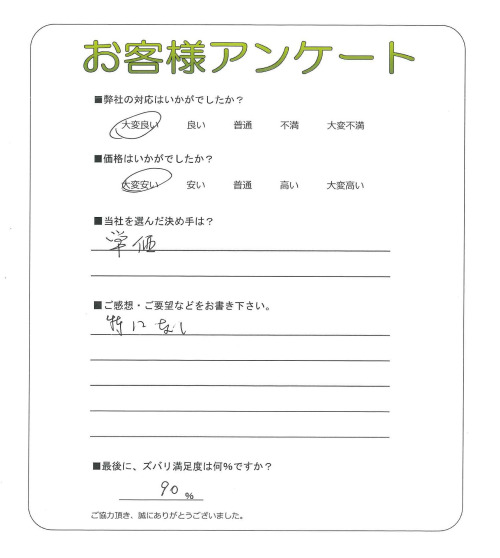 お客様アンケート
■弊社の対応はいかがでしたか？
大変良い 良い 普通 不満 大変不満
■価格はいかがでしたか？
大変安い 安い 普通 高い 大変高い
■当社を選んだ決め手は？
単価
■ご感想・ご要望などをお書き下さい。
特になし
■最後に、ズバリ満足度は何％ですか？
90 %
ご協力頂き、誠にありがとうございました。